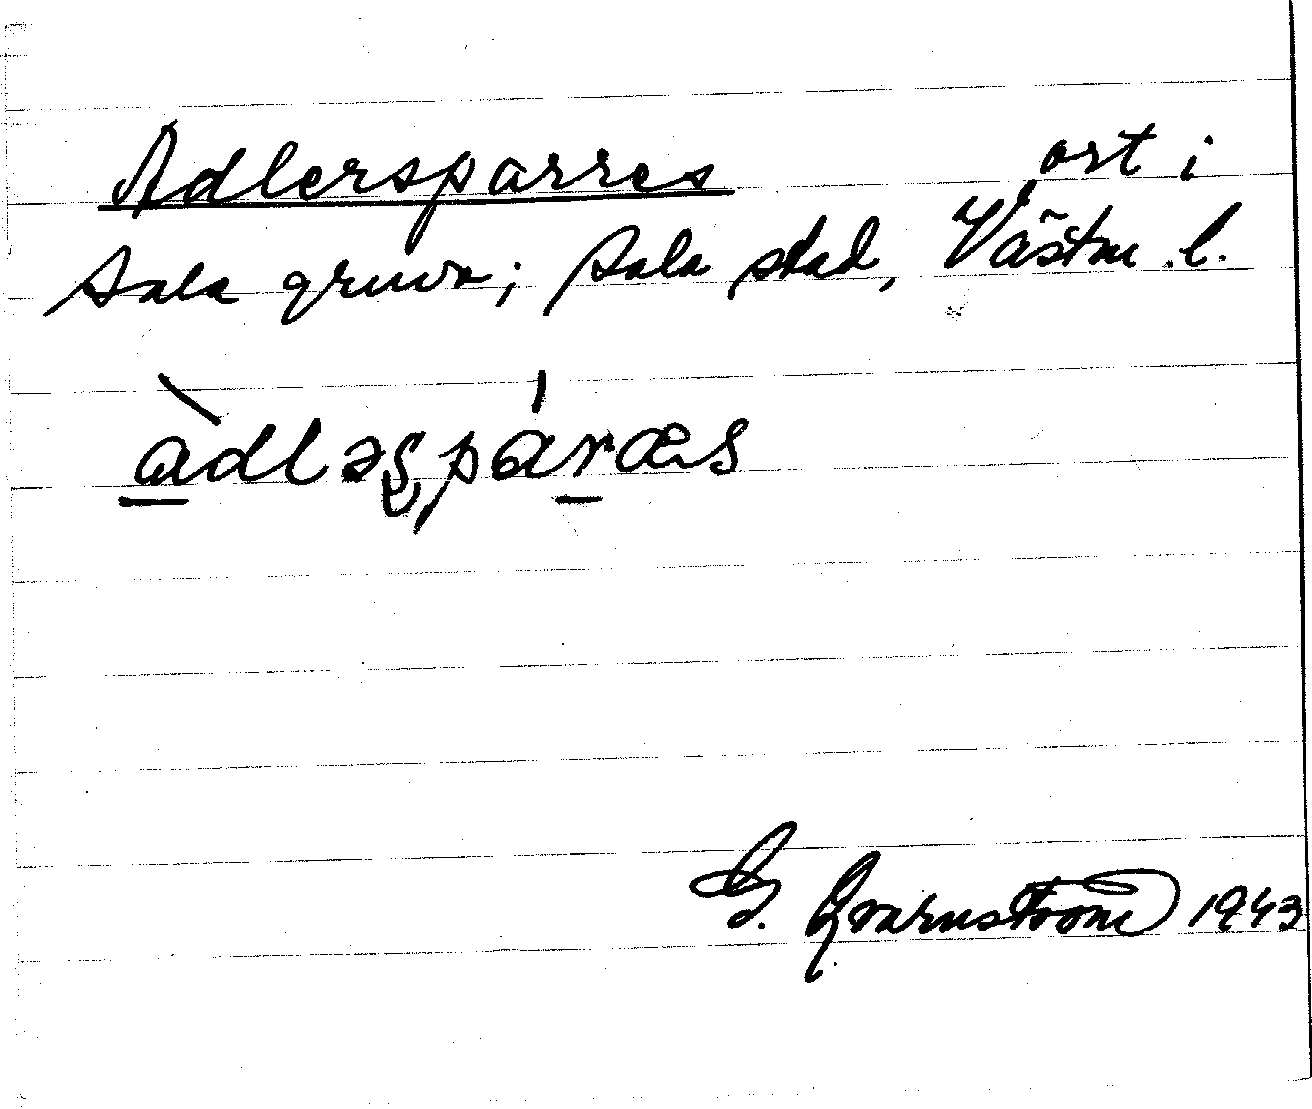 Adlersparres, ort i
Sala gruva; Sala stad, Västm. l.
àdləʂpáræs
G. Qvarnström 1943